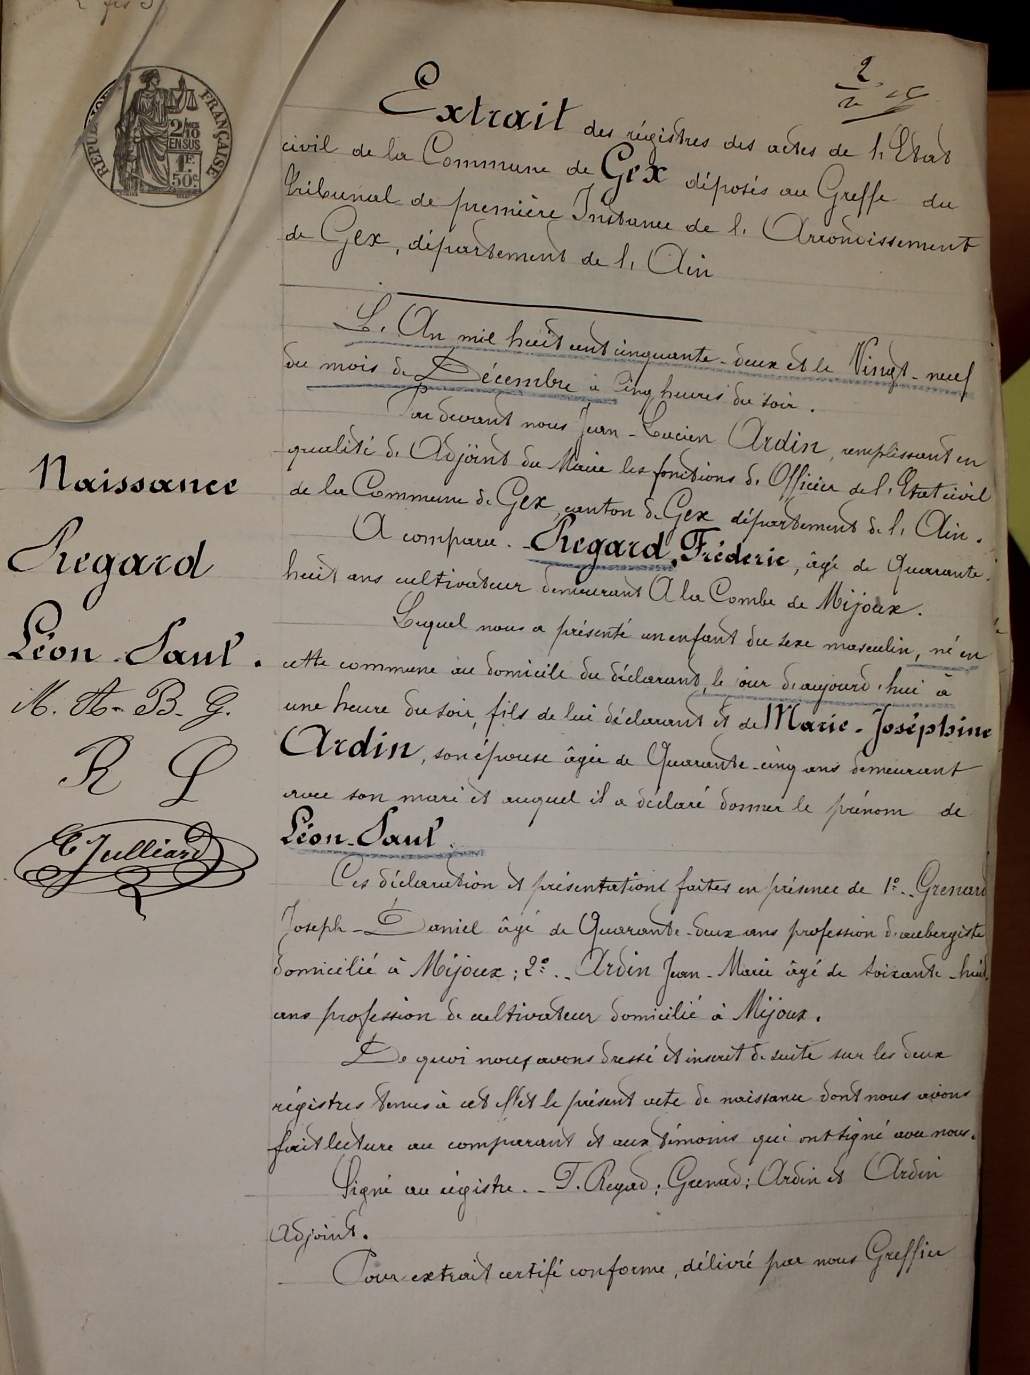 2
Extrait des régistres des actes de l'Etat
civil de la Commune de Gex déposés au Greffe du
tribunal de première Instance de l'Arrondissement
de Gex, département de l'Ain
RÉPUBLIQUE FRANÇAISE
2/10
EN SUS
1F.
50c.
L'An mil huit cent cinquante-deux et le Vingt-neuf
du mois de Décembre à cinq heures du soir.
Par devant nous Jean-Lucien Ardin, remplissant en
qualité d'Adjoint du Maire les fonctions d'Officier de l'Etat civil
de la Commune de Gex, canton de Gex département de l'Ain.
A comparu.- Regard, Fréderic, âgé de Quarante-
huit ans cultivateur demeurant A la Combe de Mijoux.
Lequel nous a présenté un enfant du sexe masculin, né en
cette commune au domicile du déclarant, le jour d'aujourd'hui à
une heure du soir, fils de lui déclarant et de Marie-Joséphine
Ardin, son épouse âgée de Quarante-cinq ans demeurant
avec son mari et auquel il a déclaré donner le prénom de
Léon-Paul.
Ces déclaration et présentations faites en présence de 1º.- Grenard
Joseph-Daniel âgé de Quarante-deux ans profession d'aubergiste
domicilié à Mijoux; 2º.- Ardin Jean-Marie âgé de soixante-huit
ans profession de cultivateur domicilié à Mijoux.
De quoi nous avons dressé et inscrit de suite sur les deux
régistres tenus à cet effet le présent acte de naissance dont nous avons
fait lecture au comparant et aux témoins qui ont signé avec nous.
Signé au régistre.- F. Regad; Grenad; Ardin et Ardin
adjoint.
Pour extrait certifé conforme, délivré par nous Greffier
Naissance
Regard
Léon-Paul.
M. A- B- G.
R L
C Julliard